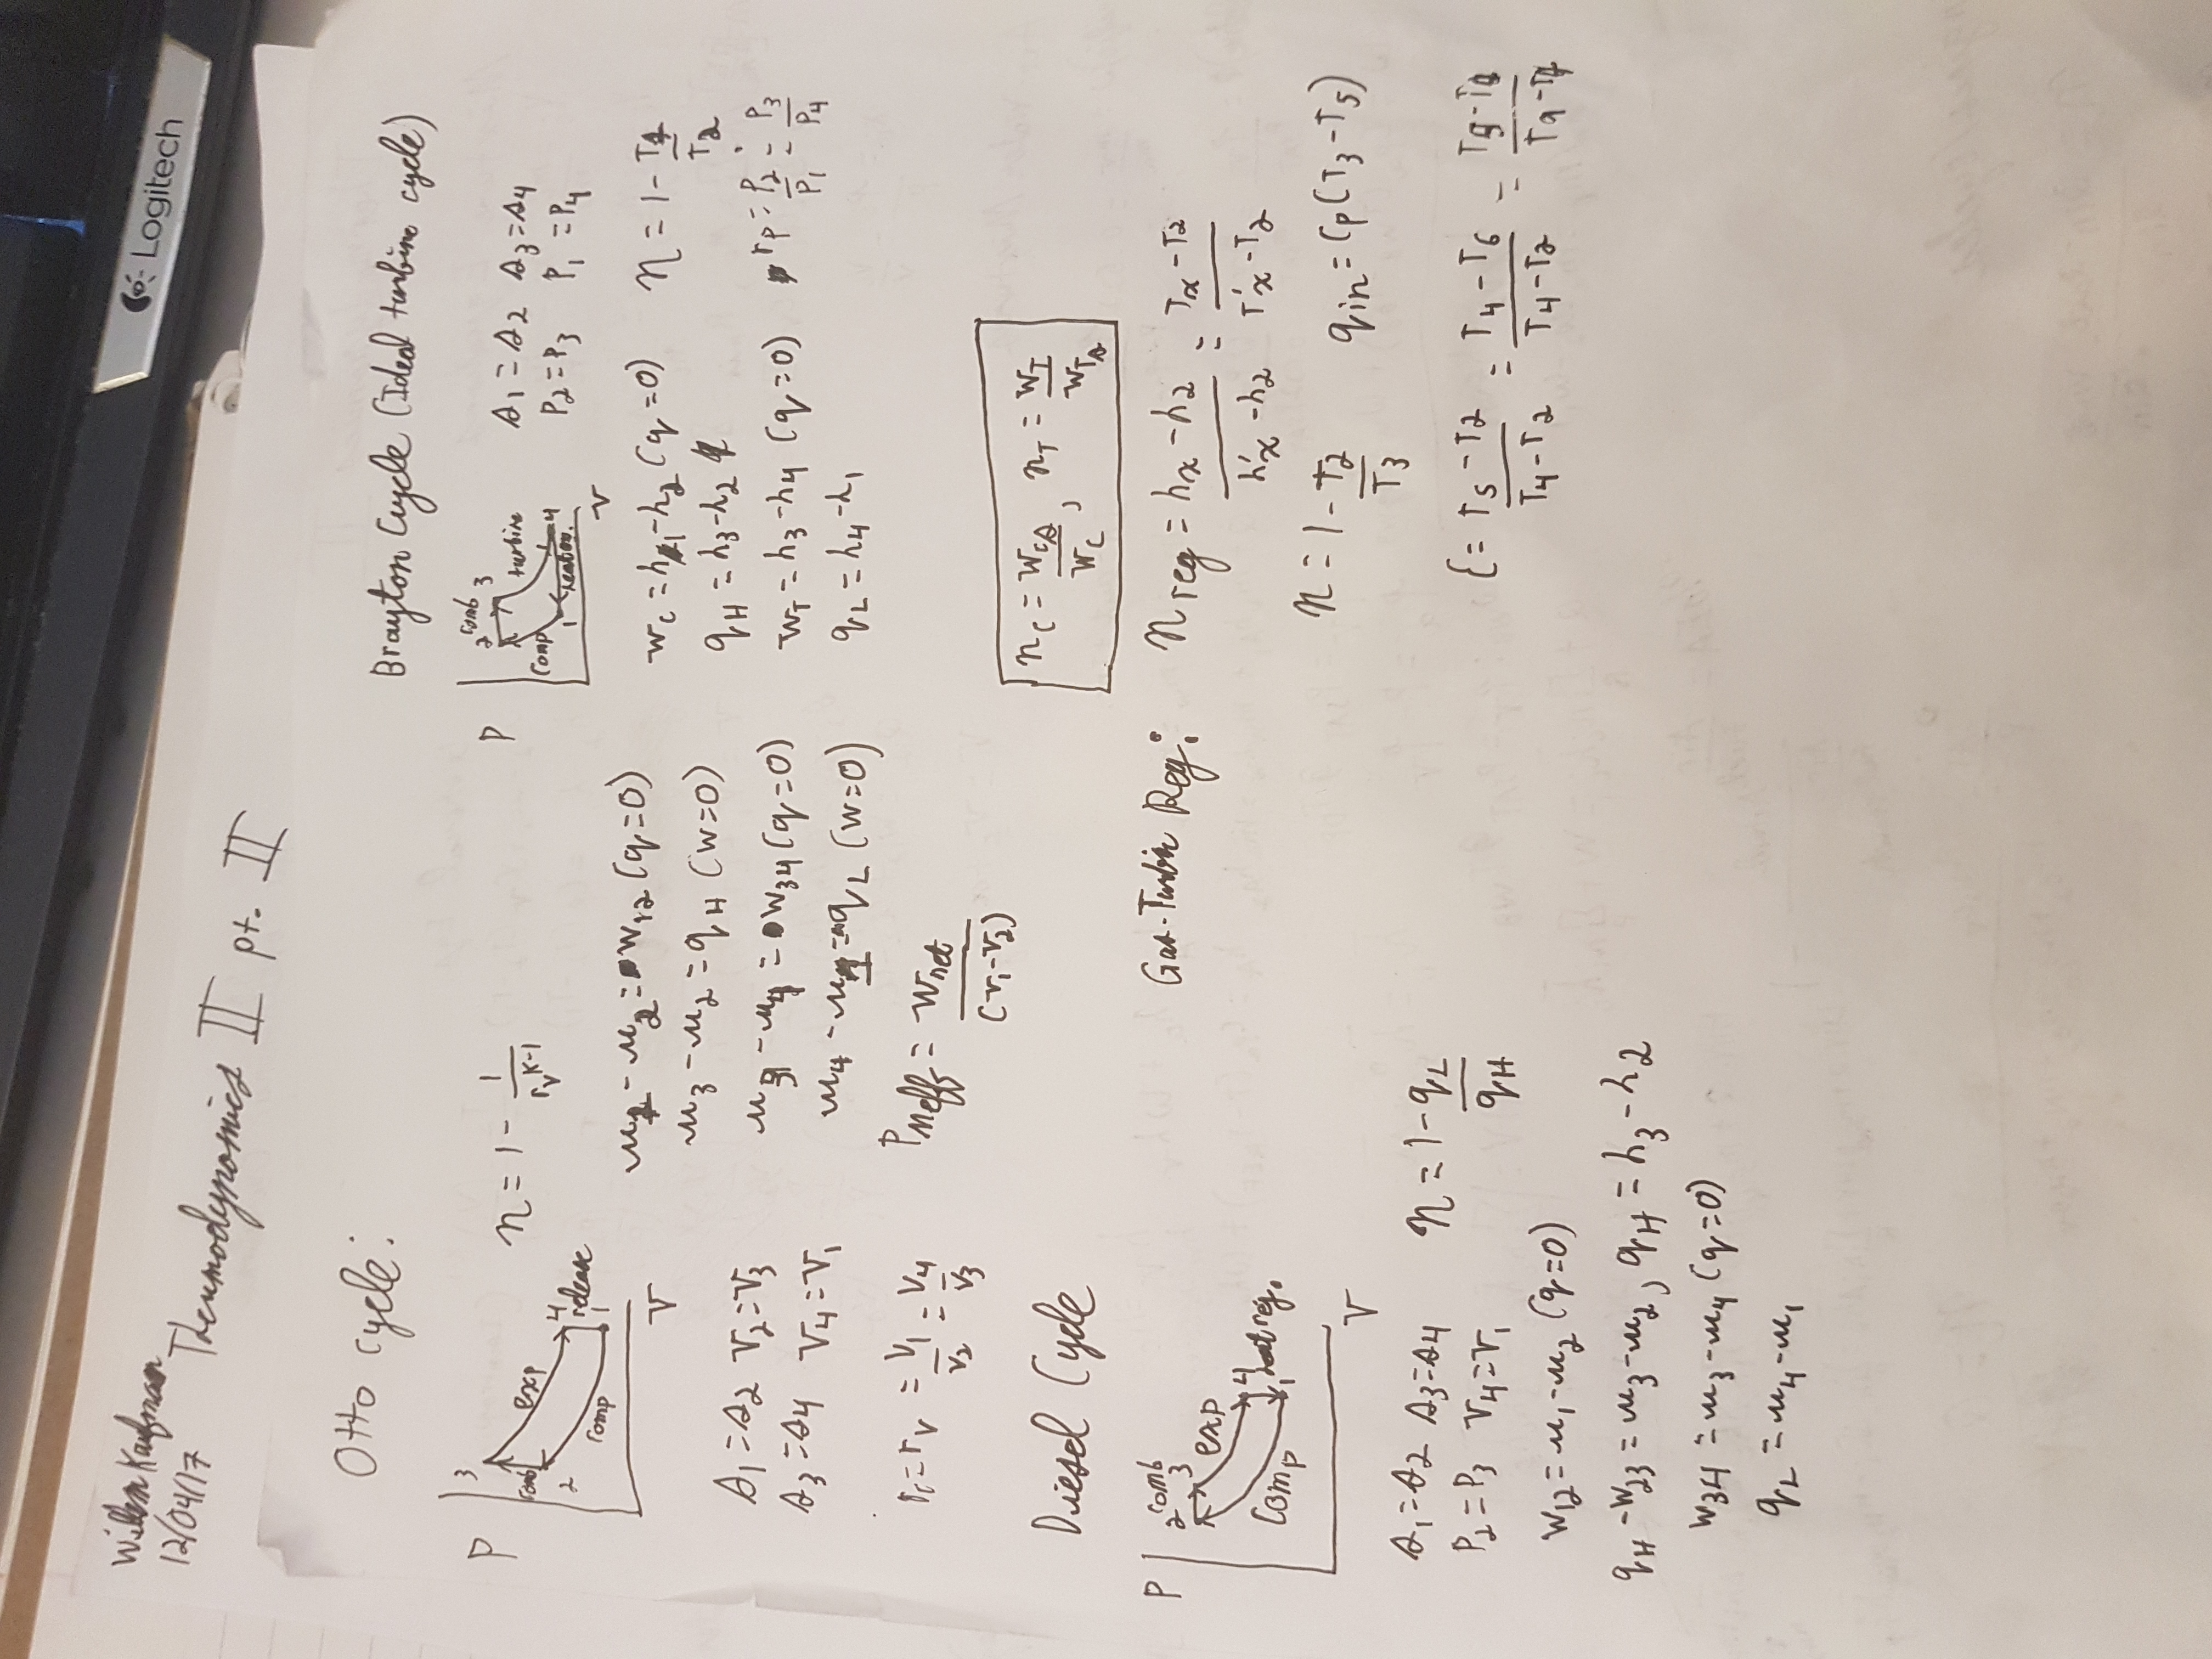 Logitech
12/04/17
Thermodynamics II pt. II
Otto Cycle:
P
3
comb
2
exp
comp
4
release
1
V
η = 1 - 1/r_v^(k-1)
s₁ = s₂ v₂ = v₃
s₃ = s₄ v₄ = v₁
u₁ - u₂ = w₁₂ (q=0)
u₃ - u₂ = q_H (w=0)
u₃ - u₄ = w₃₄ (q=0)
u₄ - u₁ = q_L (w=0)
r_c = r_v = v₁/v₂ = v₄/v₃
P_meff = w_net/(v₁-v₂)
Diesel Cycle
P
2 comb
3
exp
comp
4
1 heat reg.
V
s₁ = s₂ s₃ = s₄
P₂ = P₃ v₄ = v₁
η = 1 - q_L/q_H
w₁₂ = u₁ - u₂ (q=0)
q_H - w₂₃ = u₃ - u₂, q_H = h₃ - h₂
w₃₄ = u₃ - u₄ (q=0)
q_L = u₄ - u₁
Brayton Cycle (Ideal turbine cycle)
P
2 comb 3
turbine
comp
1
4
V
s₁ = s₂ s₃ = s₄
P₂ = P₃ P₁ = P₄
w_c = h₁ - h₂ (q=0)
q_H = h₃ - h₂
w_T = h₃ - h₄ (q=0)
q_L = h₄ - h₁
η = 1 - T₁/T₂
r_p = P₂/P₁ = P₃/P₄
η_c = w_cs/w_c, η_T = w_T/w_Ts
Gas-Turbin Reg:
η_reg = (h_x - h₂)/(h'_x - h₂) = (T_x - T₂)/(T'_x - T₂)
η = 1 - T₂/T₃ q_in = C_p(T₃ - T₅)
ξ = (T₅ - T₂)/(T₄ - T₂) = (T₄ - T₆)/(T₄ - T₂) =